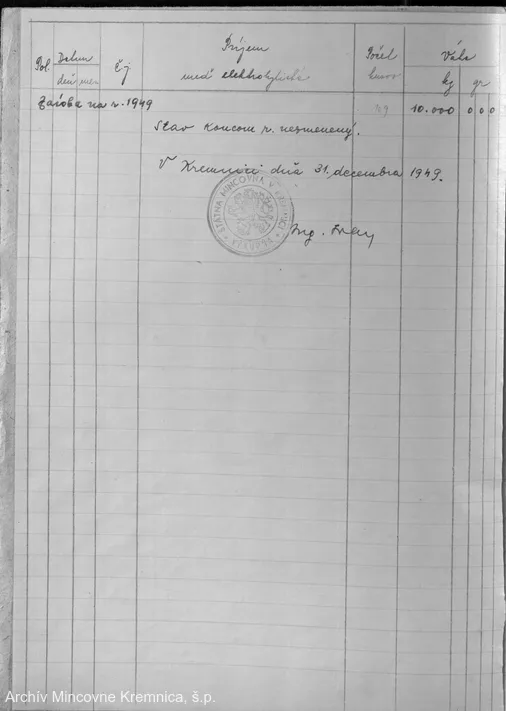 Pol. Dátum Čj Príjem Počet Váha
deň mes. meď elektrolytická kusov kg gr
Zásoba na r. 1949 10.000 000
Stav koncom r. nezmenený.
V Kremnici dňa 31. decembra 1949.
ŠTÁTNA MINCOVŇA V KREMNICI
Ing.
Archív Mincovne Kremnica, š.p.